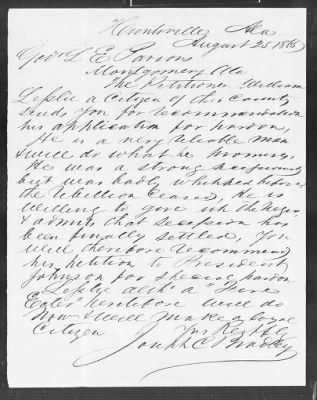 Huntsville Ala
August 25 1865
Gov L E Parsons
Montgomery Ala
The Petitioner William
Leslie a Citizen of this County
sends you for recommendation
his application for pardon,
He is a very reliable man
& will do what he promises.
He was a strong Secessionist
but was badly whipped before
the rebellion ceased, He is
willing to give up the Negro
& admits that secession has
been finally settled, You
will therefore recommend
his petition to President
Johnson for special pardon
Leslie altho a "Fire
Eater" heretofore will do
now & will make a loyal
Citizen Yrs Respfly
Joseph C Bradley